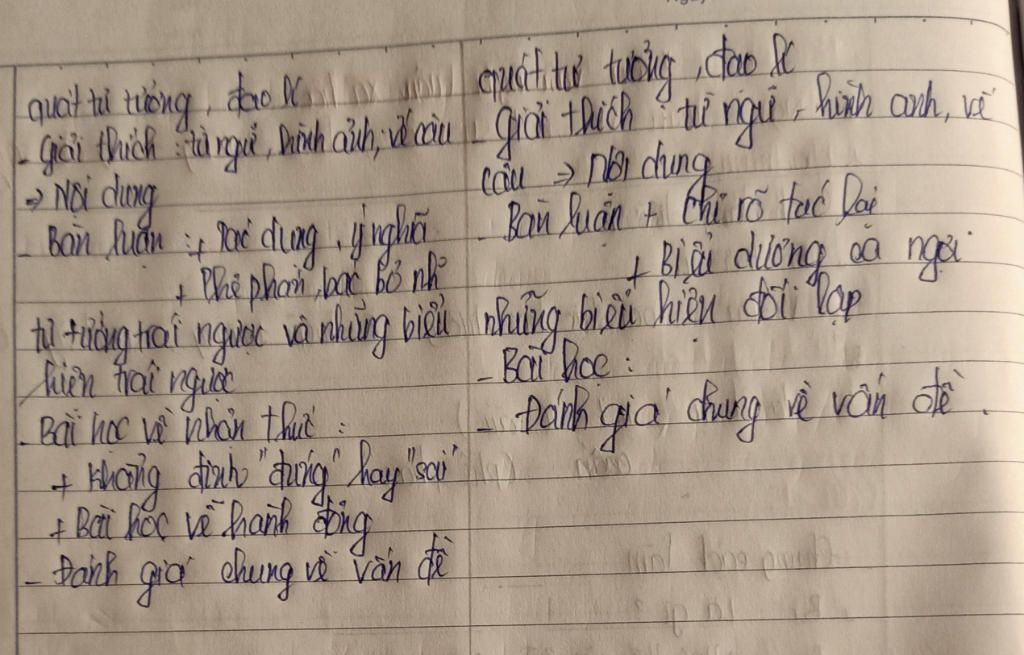 quát tư tưởng, đạo lí
- Giải thích: từ ngữ, hình ảnh, vế câu
⇒ Nội dung
- Bàn luận: + Tác dụng, ý nghĩa
+ Phê phán, bác bỏ nh
tư tưởng trái ngược và những biểu
hiện trái ngược
- Bài học về nhận thức:
+ Khẳng định "đúng" hay "sai"
+ Bài học về hành động
- Đánh giá chung về vấn đề
quát tư tưởng, đạo lí
- Giải thích: từ ngữ, hình ảnh, vế
câu ⇒ Nội dung
- Bàn luận + Chỉ rõ tác hại
+ Biểu dương ca ngợi
những biểu hiện đối lập
- Bài học:
- Đánh giá chung về vấn đề.